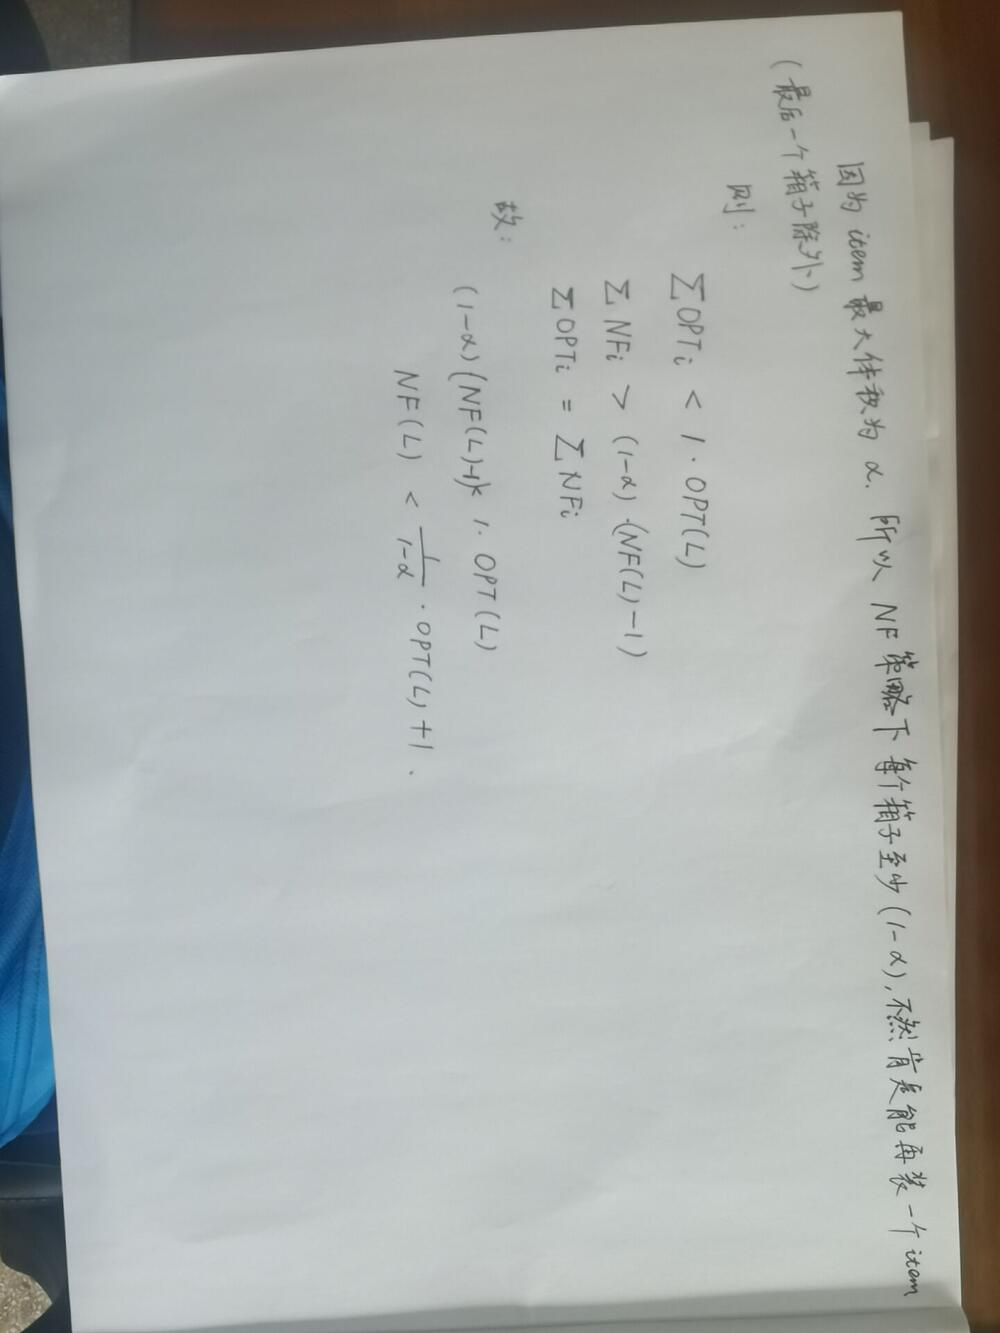 因为 item 最大体积为 α. 所以 NF 策略下每个箱子至少(1-α), 不然肯定能再装一个 item
(最后一个箱子除外)
则:
∑OPTi < 1·OPT(L)
∑NFi > (1-α)·(NF(L)-1)
∑OPTi = ∑NFi
故:
(1-α)(NF(L)-1)< 1·OPT(L)
NF(L) < 1/(1-α) ·OPT(L)+1.